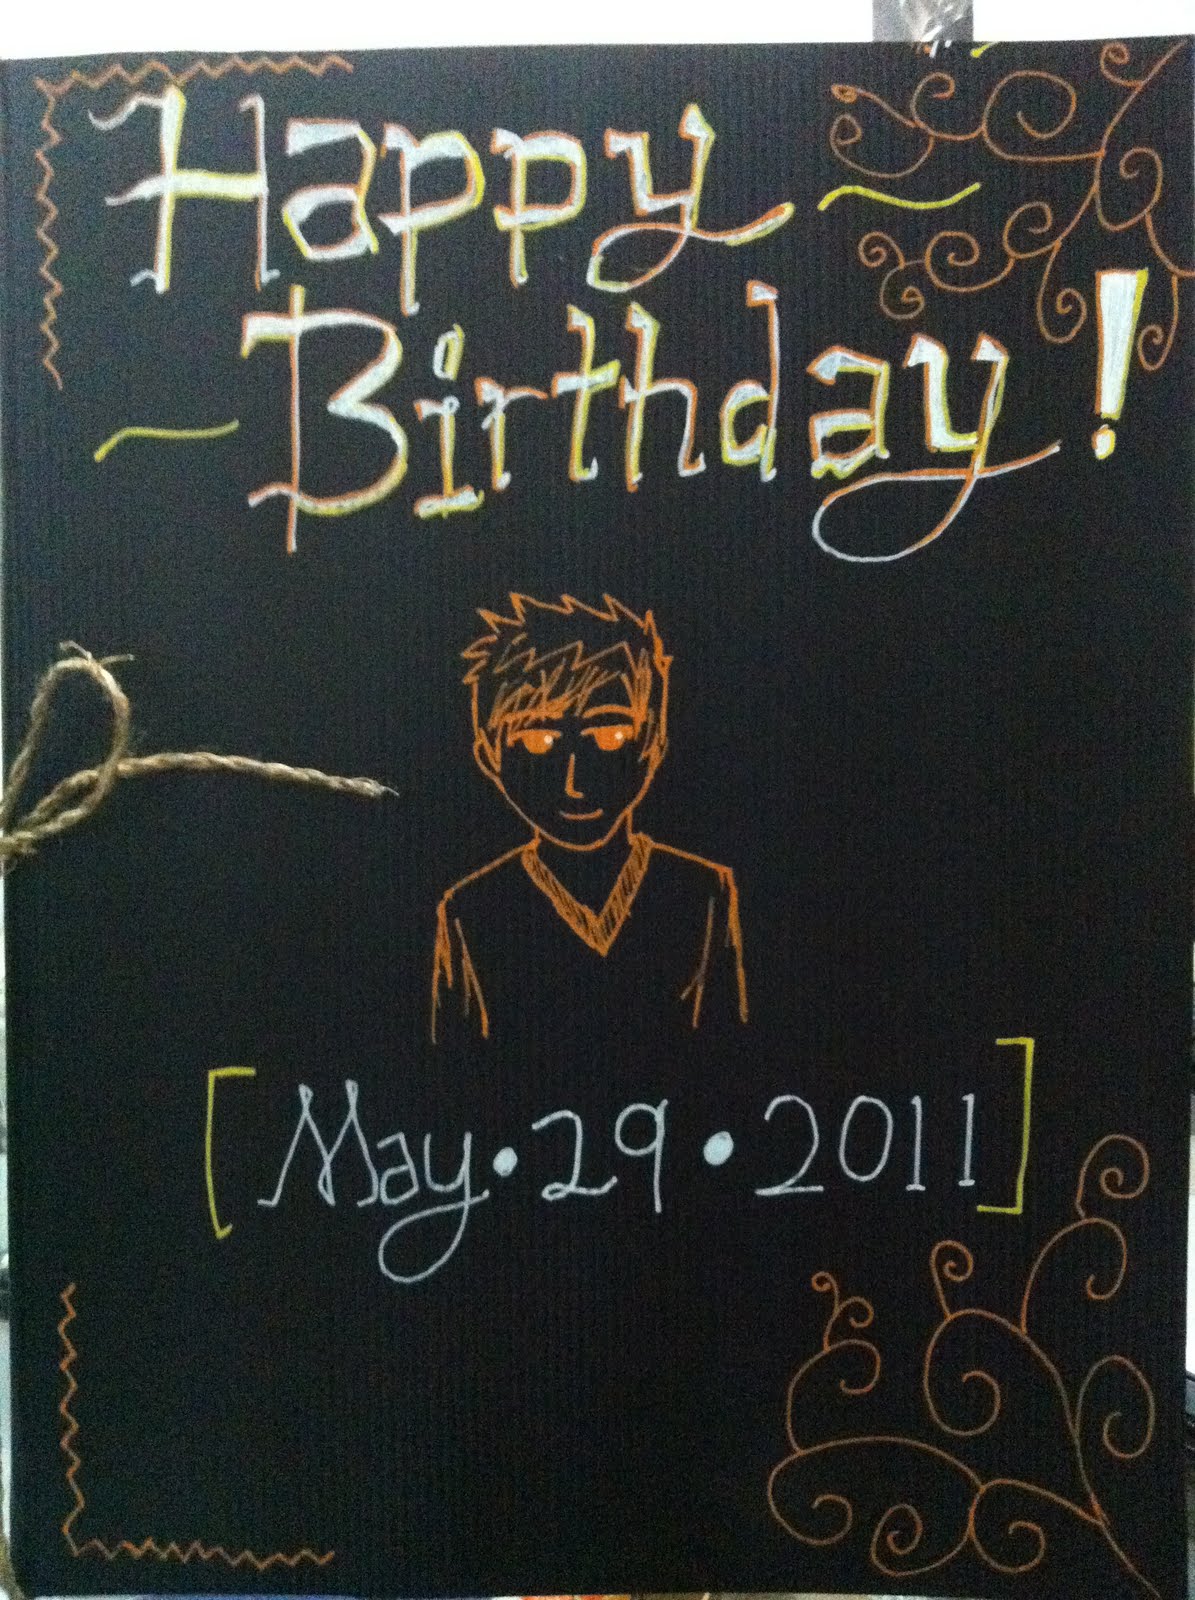 Happy ~
~ Birthday!
[May • 29 • 2011]